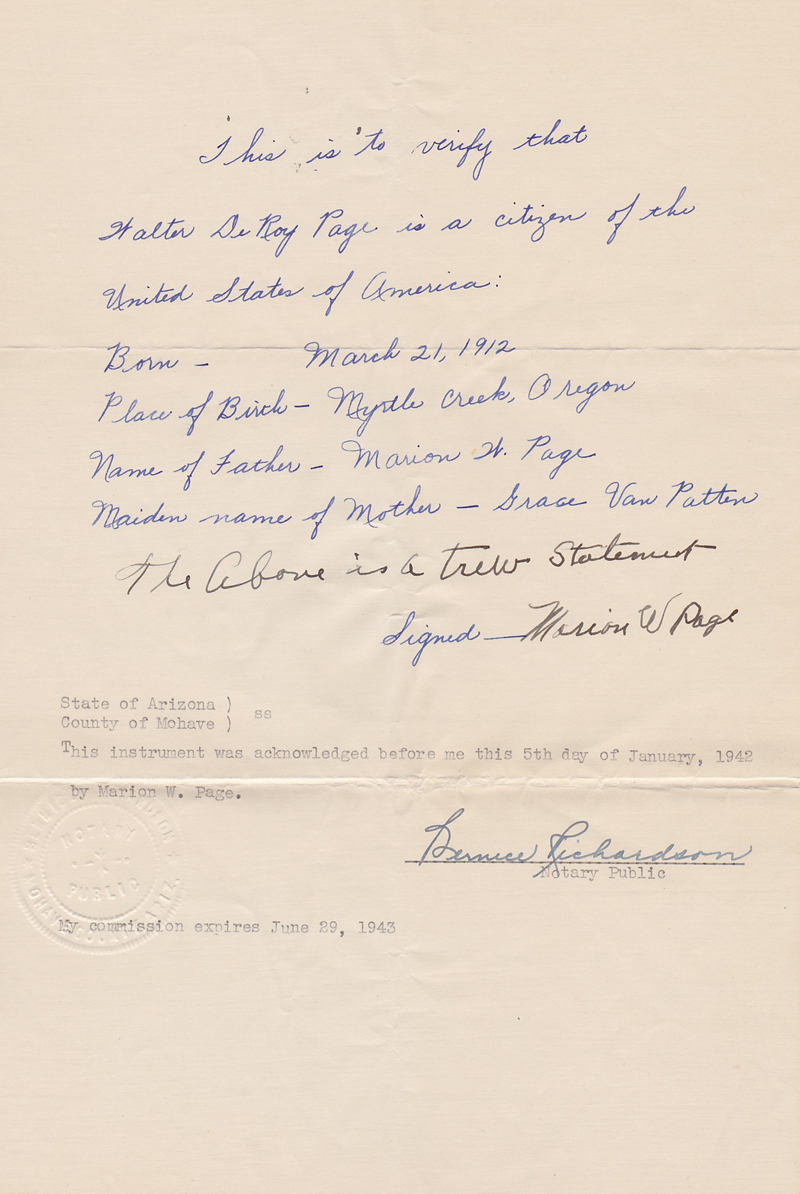 This is to verify that
Walter DeRoy Page is a citizen of the
United States of America:
Born - March 21, 1912
Place of Birth - Myrtle Creek, Oregon
Name of Father - Marion W. Page
Maiden name of Mother - Grace Van Patten
The Above is a trew Statement
Signed - Marion W Page
State of Arizona )
County of Mohave ) ss
This instrument was acknowledged before me this 5th day of January, 1942
by Marion W. Page.
Bernice Richardson
Notary Public
NOTARY
PUBLIC
My commission expires June 29, 1943